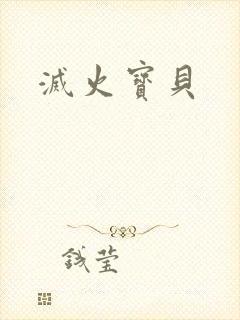 滅火寶貝
錢瑩